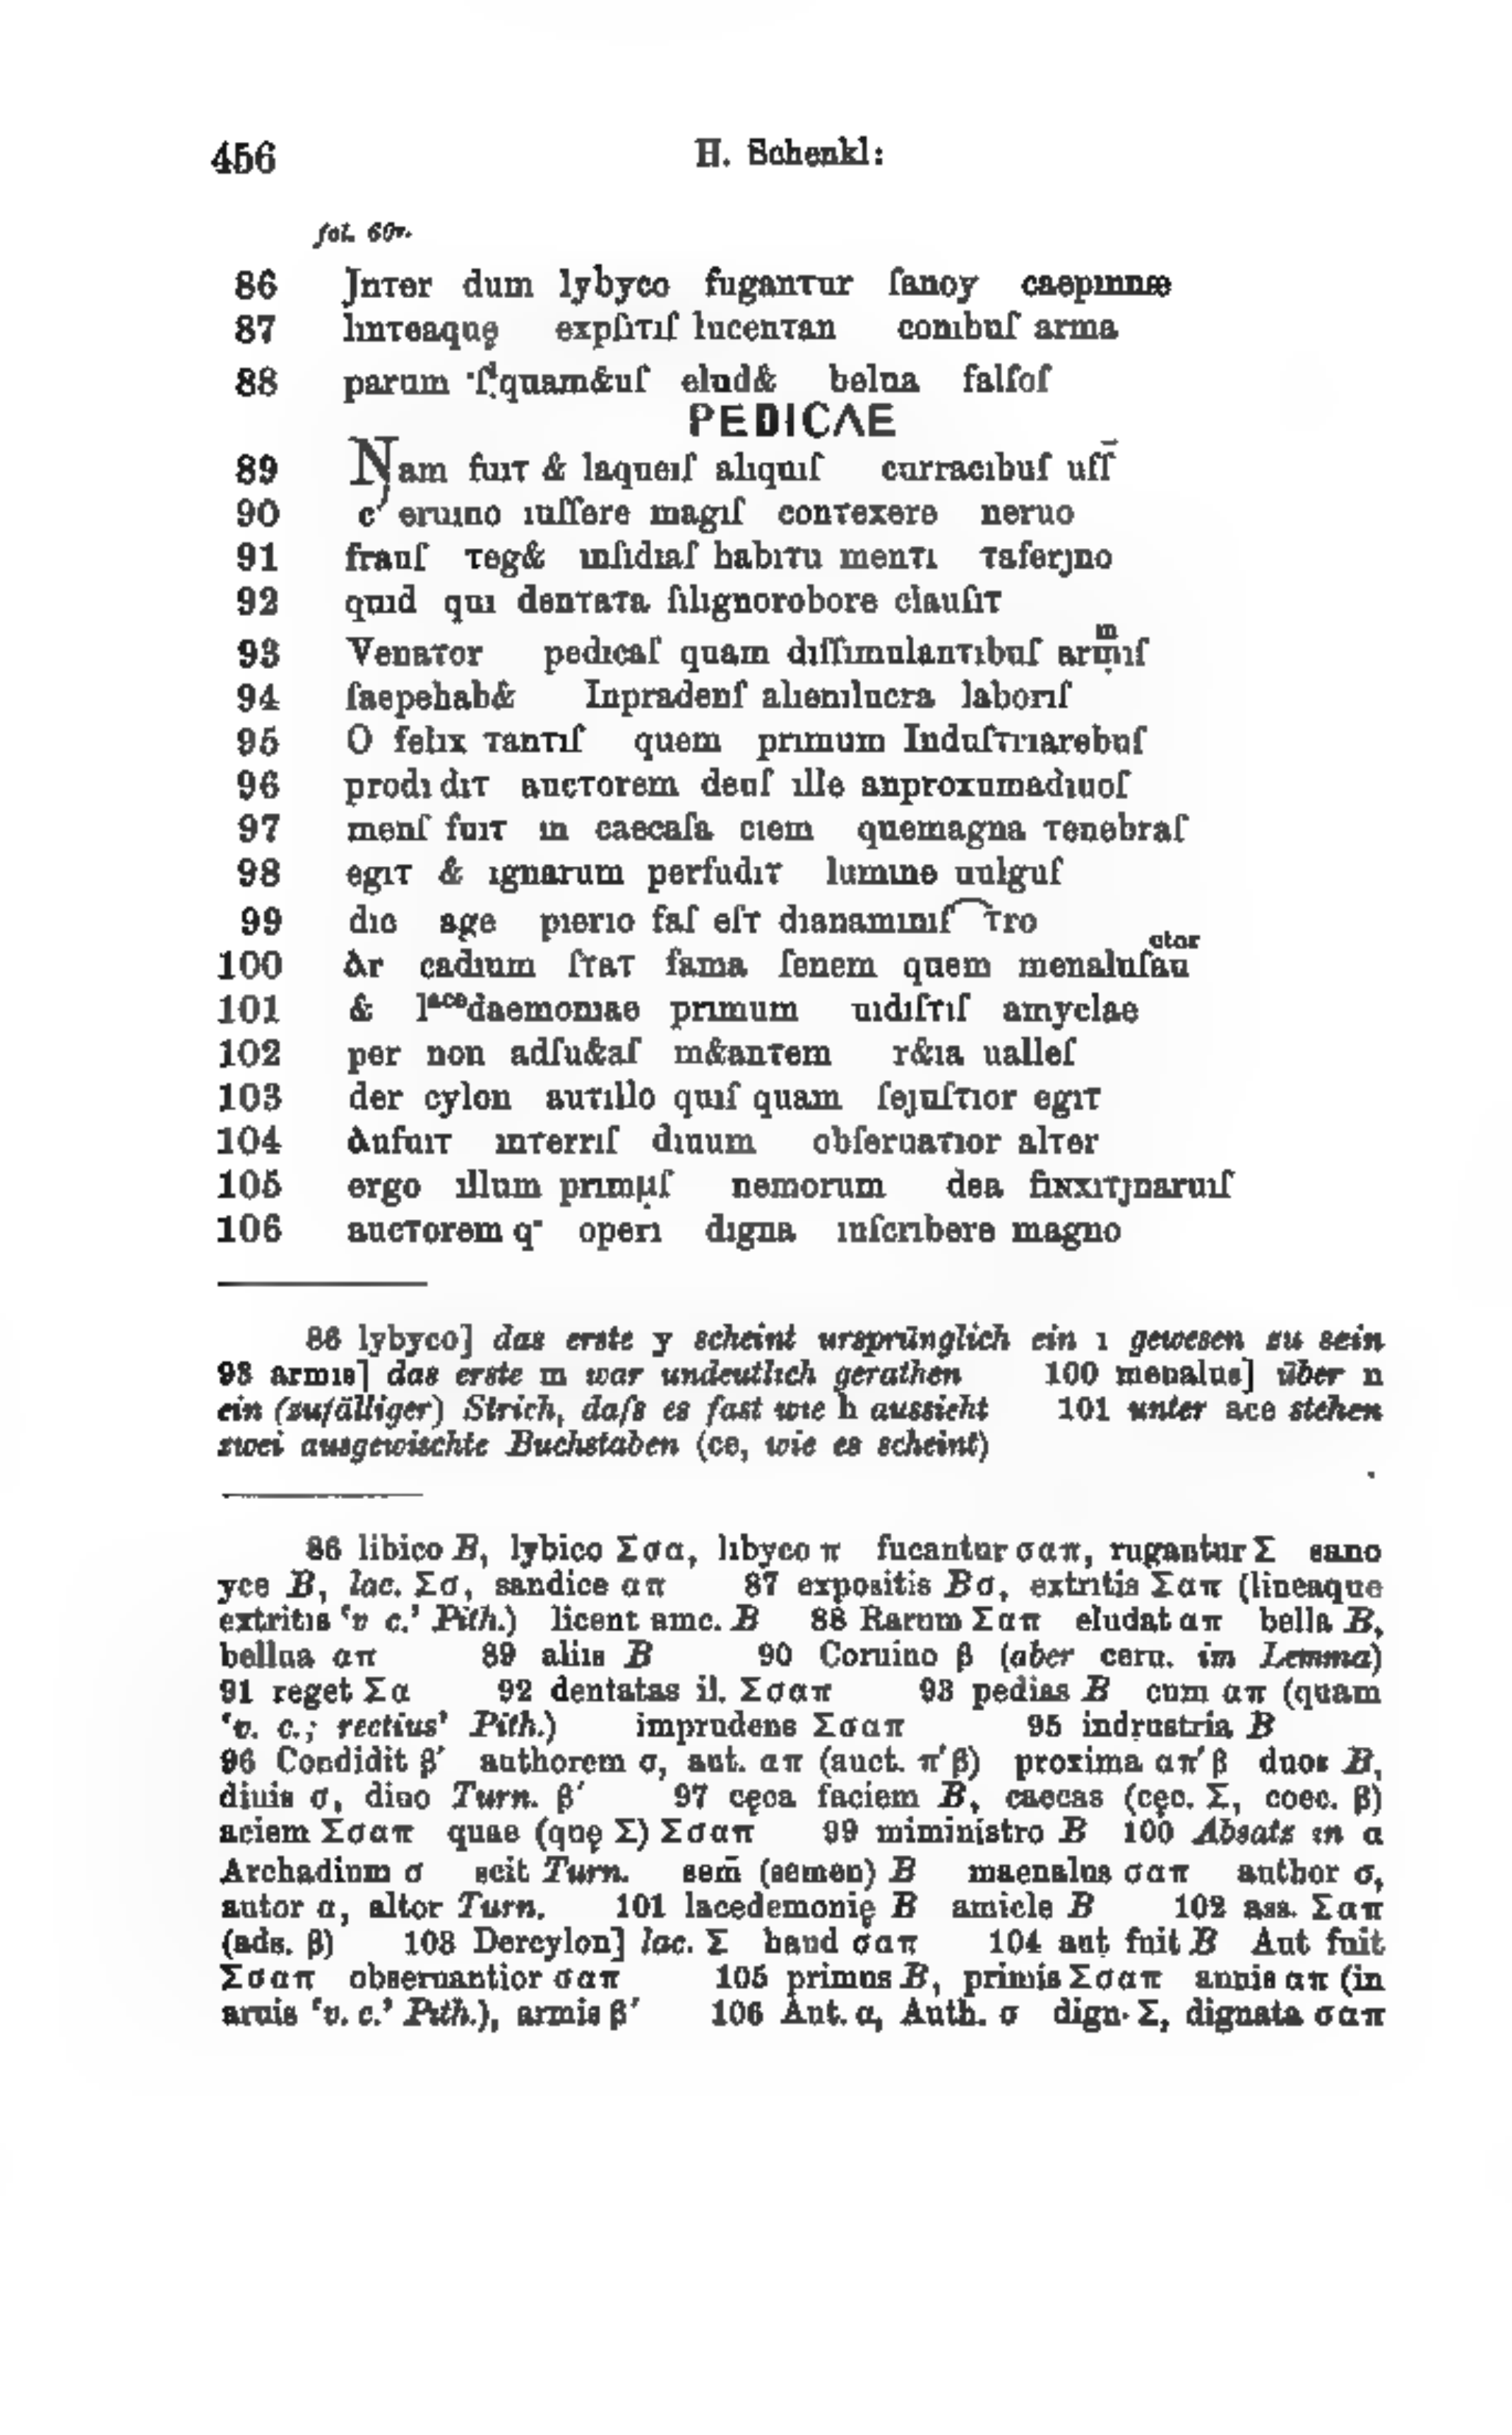 456 H. Schenkl:
fol. 60r.
86 Jnτer dum lybyco fuganτur ſanoy caepınnæ
87 lınτeaquę expſiτıſ lucenτan conıbuſ arma
88 parum ſquam&uſ elud& belua falſoſ
PEDICΛE
89 Nam fuıτ & laqueıſ alıquıſ curracıbuſ uſſ̄
90 c’ eruıno ıuſſere magıſ conτexere neruo
91 frauſ τeg& ınſidıaſ habıτu menτı τaferȷno
92 quıd quı denτaτa ſilıgnorobore clauſiτ
93 Venaτor pedıcaſ quam dıſſımulanτıbuſ armıſ
94 ſaepehab& Inpradenſ alıenılucra laborıſ
95 O felıx τanτıſ quem prımum Induſτrıarebuſ
96 prodı dıτ aucτorem deuſ ılle anproxumadıuoſ
97 menſ fuıτ ın caecaſa cıem quemagna τenebraſ
98 egıτ & ıgnarum perfudıτ lumıne uulguſ
99 dıc age pıerıo faſ eſτ dıanamınıſ⁀τro
100 Ar cadıum ſτaτ fama ſenem quem menaluſau ctor
101 & lᵃᶜᵉdaemonıae prımum uıdıſτıſ amyclae
102 per non adſu&aſ m&anτem r&ıa ualleſ
103 der cylon auτıllo quıſ quam ſeȷuſτıor egıτ
104 Aufuıτ ınτerrıſ dıuum obſeruaτıor alτer
105 ergo ıllum prımμ̣ſ nemorum dea fınxıτȷnaruıſ
106 aucτorem q· operı dıgna ınſcrıbere magno
86 lybyco] das erste y scheint ursprünglich ein ı gewesen zu sein
93 armıs] das erste m war undeutlich gerathen 100 menalus] über n
ein (zufälliger) Strich, daſs es fast wie h aussieht 101 unter ace stehen
zwei ausgewischte Buchstaben (ce, wie es scheint)
86 libico B, lybico Σσα, libyco π fucantur σαπ, rugantur Σ sano
yce B, lac. Σσ, sandice απ 87 expositis Bσ, extritis Σαπ (lineaque
extritis ‘v c.’ Pith.) licent amc. B 88 Rarum Σαπ eludat απ bella B,
bellua απ 89 aliis B 90 Coruino β (aber ceru. im Lemma)
91 reget Σα 92 dentatas il. Σσαπ 93 pedias B cum απ (quam
‘v. c.; rectius’ Pith.) imprudens Σσαπ 95 indrustria B
96 Condidit β′ authorem σ, aut. απ (auct. π′β) proxima απ′β duos B,
diuis σ, diuo Turn. β′ 97 cęca faciem B, caecas (cęc. Σ, coec. β)
aciem Σσαπ quae (quę Σ) Σσαπ 99 miministro B 100 Absatz in α
Archadium σ scit Turn. sem̄ (semen) B maenalus σαπ author σ,
autor α, altor Turn. 101 lacedemonię B amicle B 102 ass. Σαπ
(ads. β) 103 Dercylon] lac. Σ haud σαπ 104 aut fuit B Aut fuit
Σσαπ obseruantior σαπ 105 primus B, primis Σσαπ annis απ (in
aruis ‘v. c.’ Pith.), armis β′ 106 Aut. α, Auth. σ dign· Σ, dignata σαπ